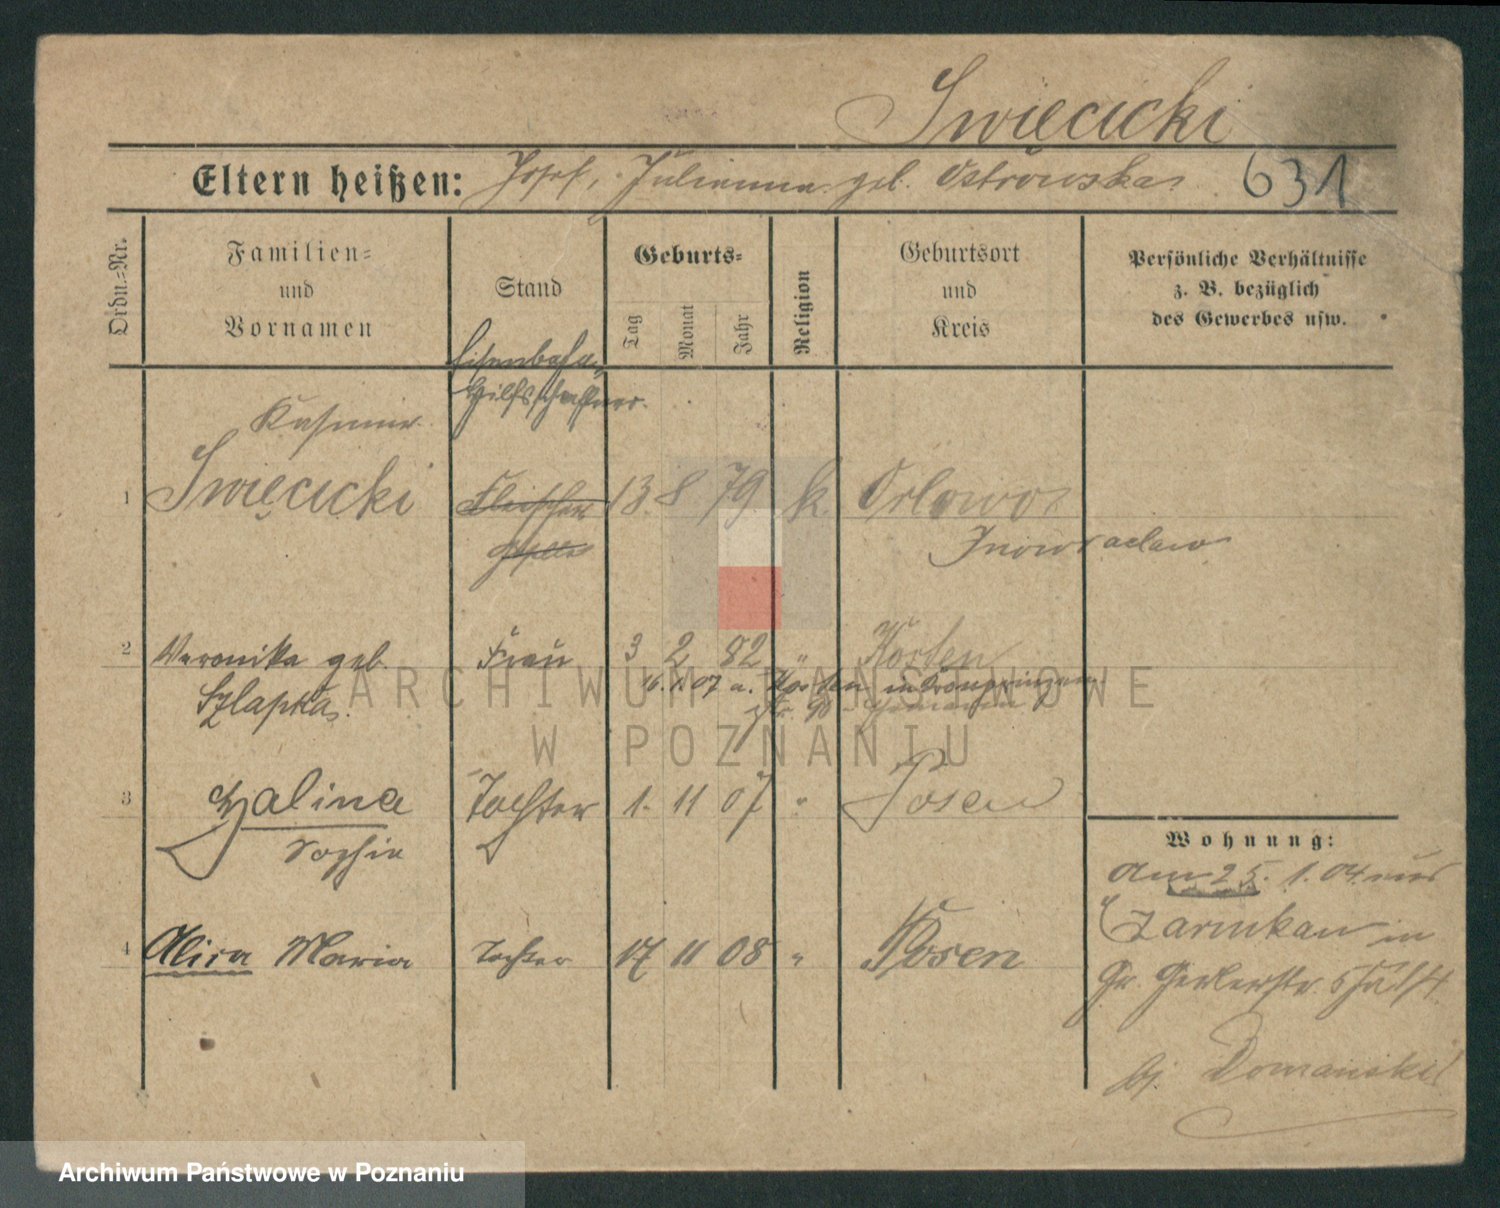 Swięcicki
Eltern heißen: Josef, Julianna geb. Ostrowska 631
Ordn.=Nr.
Familien=
und
Vornamen
Stand
Geburts=
Tag
Monat
Jahr
Religion
Geburtsort
und
Kreis
Persönliche Verhältnisse
z. B. bezüglich
des Gewerbes usw.
Eisenbahn
Hilfsschaffner.
Kasimir
1 Swięcicki Fleischer 13. 8 79 k. Orlowo
geselle Inowraclaw
2 Veronika geb. Frau 3 2 82 " Kosten
Szlapka. 16. 1. 07 a. Kosten in Kronprinzen
str. 90
3 Halina Tochter 1. 11 07 " Posen
Sophie
Wohnung:
Am 25. 1. 04 aus
Czarnikau in
4 Alica Maria Tochter 17 11 08 " Posen
Gr. Gerberstr.
bj. Domanski
ARCHIWUM PAŃSTWOWE
W POZNANIU
Archiwum Państwowe w Poznaniu